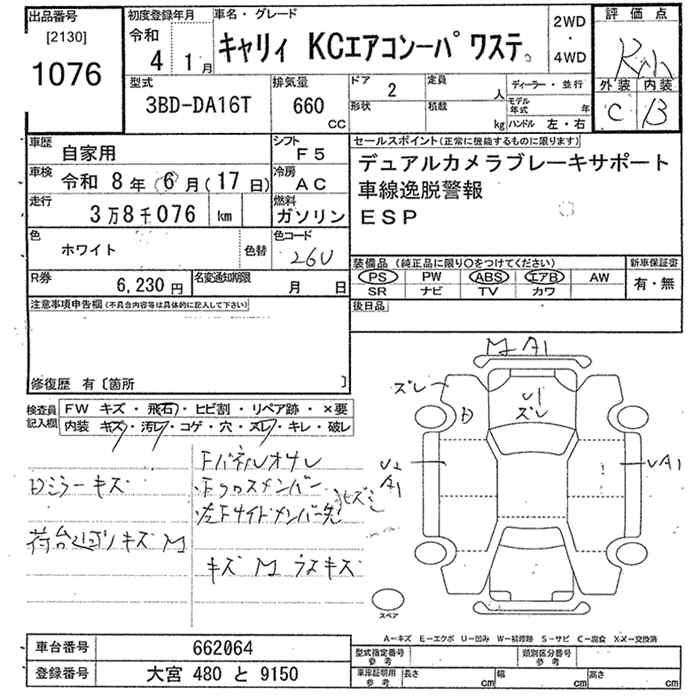 出品番号
[2130]
1076
初度登録年月
令和
4 1月
車名・グレード
キャリィ KCエアコンーパワステ。
2WD
・
4WD
評価点
外装 内装
C B
型式
3BD-DA16T
排気量
660
CC
ドア 2
形状
定員 人
積載 kg
ディーラー・並行
モデル年式 年
ハンドル 左・右
車歴 自家用
車検 令和 8年(6月(17日)
走行 3万8千076 km
シフト F5
冷房 AC
燃料 ガソリン
セールスポイント(正常に機能するものに限ります)
デュアルカメラブレーキサポート
車線逸脱警報
ESP
色 ホワイト
色替
色コード 26U
R券 6,230円
名変通知期限 月 日
装備品(純正品に限り〇をつけてください)
PS PW ABS エアB AW
SR ナビ TV カワ
新車保証書
有・無
後日品
注意事項申告欄(不具合内容等は具体的に記入して下さい)
修復歴 有〔箇所 〕
検査員記入欄
FW キズ・飛石・ヒビ割・リペア跡・×要
内装 キズ・汚レ・コゲ・穴・ズレ・キレ・破レ
Dミラーキズ
荷台 キズ M
Fパネルオサレ
Fクロスメンバー
左Fサイドメンバー先
キズ M ラスキズ
M A1
ズレ
D
U1
ズレ
U2
A1
UA1
スペア
A-キズ E-エクボ U-凹み W-補修跡 S-サビ C-腐食 X-X-交換済
車台番号 662064
登録番号 大宮 480 と 9150
型式指定番号
参考
類別区分番号
参考
車庫証明用
参考
長さ cm
幅 cm
高さ cm